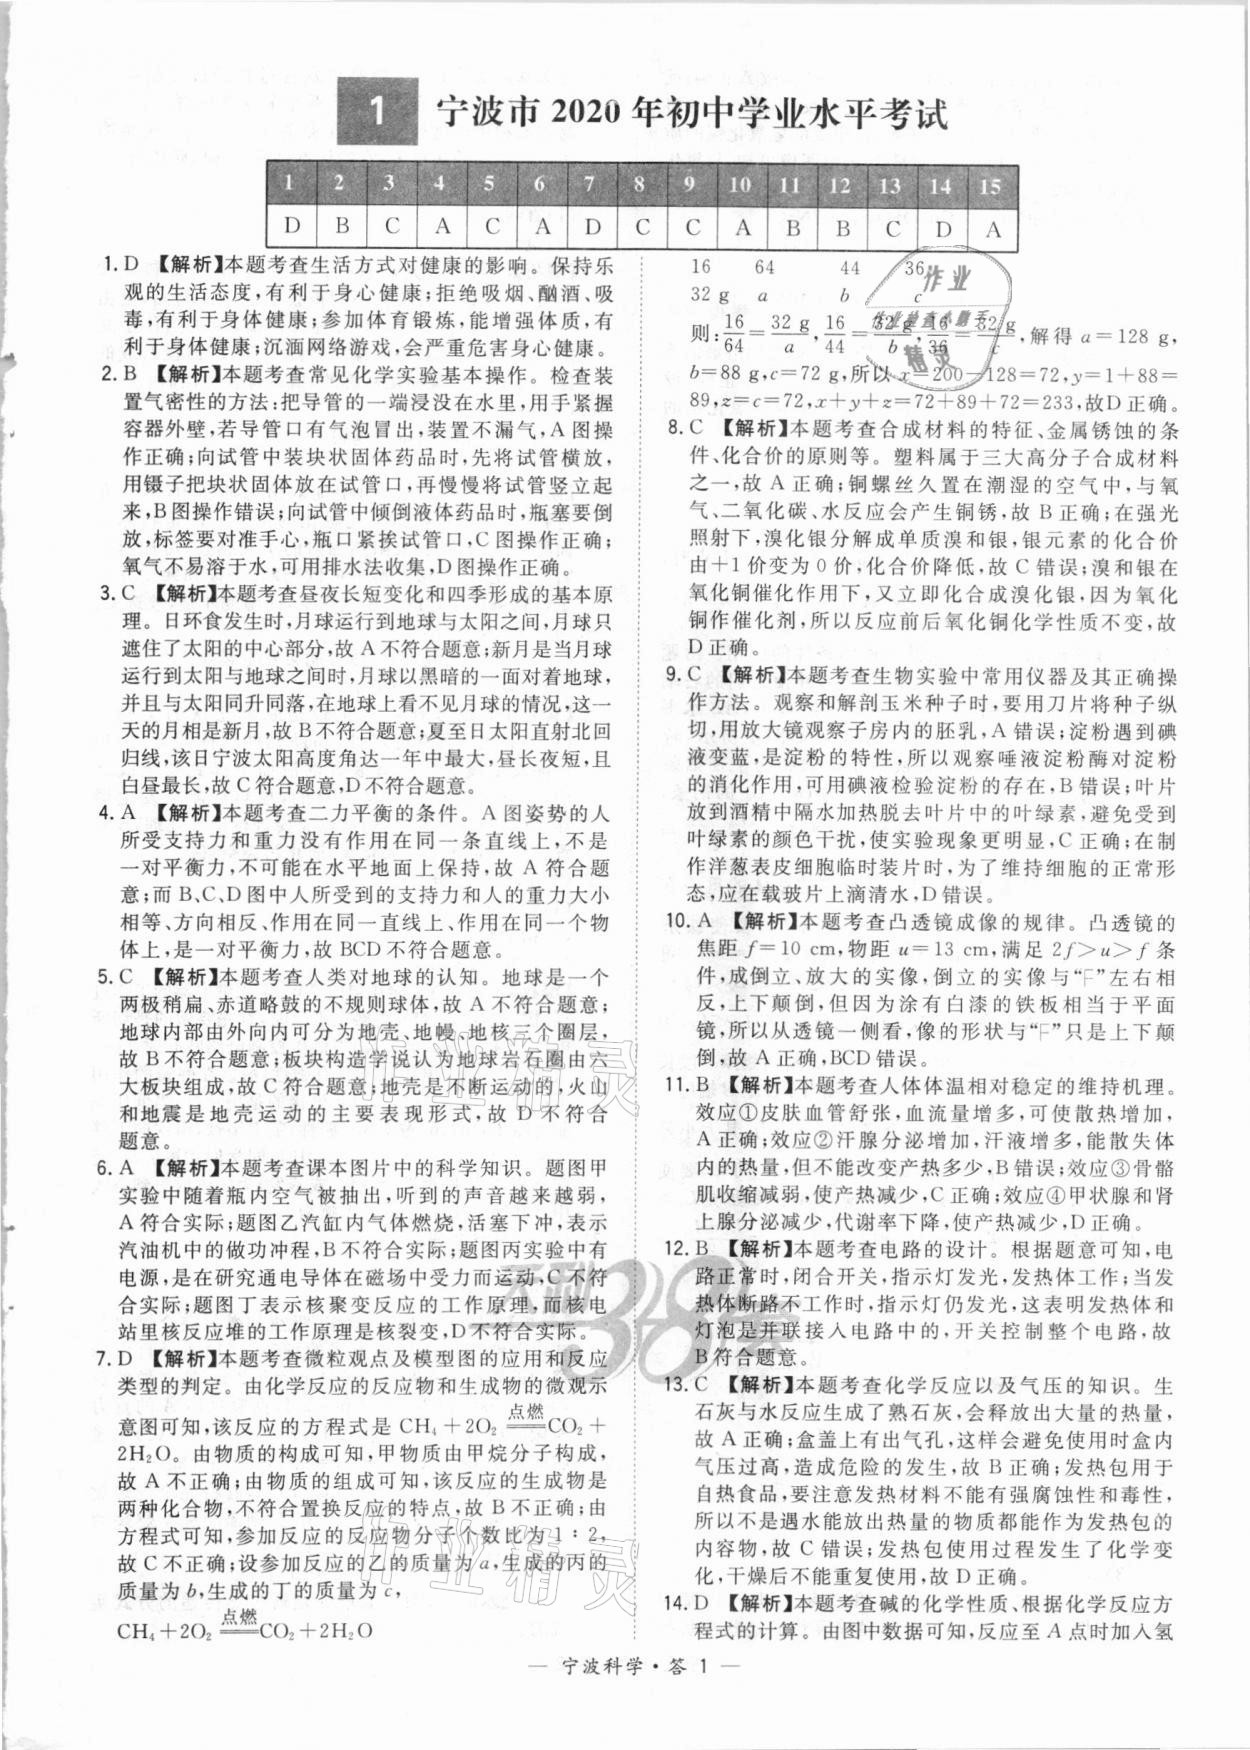 1 宁波市 2020 年初中学业水平考试
1 2 3 4 5 6 7 8 9 10 11 12 13 14 15
D B C A C A D C C A B B C D A
1. D 【解析】本题考查生活方式对健康的影响。保持乐
观的生活态度,有利于身心健康;拒绝吸烟、酗酒、吸
毒,有利于身体健康;参加体育锻炼,能增强体质,有
利于身体健康;沉湎网络游戏,会严重危害身心健康。
2. B 【解析】本题考查常见化学实验基本操作。检查装
置气密性的方法:把导管的一端浸没在水里,用手紧握
容器外壁,若导管口有气泡冒出,装置不漏气,A图操
作正确;向试管中装块状固体药品时,先将试管横放,
用镊子把块状固体放在试管口,再慢慢将试管竖立起
来,B图操作错误;向试管中倾倒液体药品时,瓶塞要倒
放,标签要对准手心,瓶口紧挨试管口,C图操作正确;
氧气不易溶于水,可用排水法收集,D图操作正确。
3. C 【解析】本题考查昼夜长短变化和四季形成的基本原
理。日环食发生时,月球运行到地球与太阳之间,月球只
遮住了太阳的中心部分,故A不符合题意;新月是当月球
运行到太阳与地球之间时,月球以黑暗的一面对着地球,
并且与太阳同升同落,在地球上看不见月球的情况,这一
天的月相是新月,故B不符合题意;夏至日太阳直射北回
归线,该日宁波太阳高度角达一年中最大,昼长夜短,且
白昼最长,故C符合题意,D不符合题意。
4. A 【解析】本题考查二力平衡的条件。A图姿势的人
所受支持力和重力没有作用在同一条直线上,不是
一对平衡力,不可能在水平地面上保持,故 A 符合题
意;而 B、C、D图中人所受到的支持力和人的重力大小
相等、方向相反、作用在同一直线上、作用在同一个物
体上,是一对平衡力,故 BCD 不符合题意。
5. C 【解析】本题考查人类对地球的认知。地球是一个
两极稍扁、赤道略鼓的不规则球体,故 A 不符合题意;
地球内部由外向内可分为地壳、地幔、地核三个圈层,
故 B 不符合题意;板块构造学说认为地球岩石圈由六
大板块组成,故 C 符合题意;地壳是不断运动的,火山
和地震是地壳运动的主要表现形式,故 D 不符合
题意。
6. A 【解析】本题考查课本图片中的科学知识。题图甲
实验中随着瓶内空气被抽出,听到的声音越来越弱,
A符合实际;题图乙汽缸内气体燃烧,活塞下冲,表示
汽油机中的做功冲程,B不符合实际;题图丙实验中有
电源,是在研究通电导体在磁场中受力而运动,C不符
合实际;题图丁表示核聚变反应的工作原理,而核电
站里核反应堆的工作原理是核裂变,D不符合实际。
7. D 【解析】本题考查微粒观点及模型图的应用和反应
类型的判定。由化学反应的反应物和生成物的微观示
意图可知,该反应的方程式是 CH₄+2O₂ 点燃 CO₂+
2H₂O。由物质的构成可知,甲物质由甲烷分子构成,
故 A 不正确;由物质的组成可知,该反应的生成物是
两种化合物,不符合置换反应的特点,故 B 不正确;由
方程式可知,参加反应的反应物分子个数比为1∶2,
故 C 不正确;设参加反应的乙的质量为 a,生成的丙的
质量为 b,生成的丁的质量为 c,
CH₄+2O₂ 点燃 CO₂+2H₂O
16 64 44 36
32 g a b c
则:16/64=32 g/a,16/44=32 g/b,16/36=32 g/c,解得 a=128 g,
b=88 g,c=72 g,所以 x=200-128=72,y=1+88=
89,z=c=72,x+y+z=72+89+72=233,故D正确。
8. C 【解析】本题考查合成材料的特征、金属锈蚀的条
件、化合价的原则等。塑料属于三大高分子合成材料
之一,故 A 正确;铜螺丝久置在潮湿的空气中,与氧
气、二氧化碳、水反应会产生铜锈,故 B 正确;在强光
照射下,溴化银分解成单质溴和银,银元素的化合价
由+1价变为 0 价,化合价降低,故 C 错误;溴和银在
氧化铜催化作用下,又立即化合成溴化银,因为氧化
铜作催化剂,所以反应前后氧化铜化学性质不变,故
D正确。
9. C 【解析】本题考查生物实验中常用仪器及其正确操
作方法。观察和解剖玉米种子时,要用刀片将种子纵
切,用放大镜观察子房内的胚乳,A错误;淀粉遇到碘
液变蓝,是淀粉的特性,所以观察唾液淀粉酶对淀粉
的消化作用,可用碘液检验淀粉的存在,B错误;叶片
放到酒精中隔水加热脱去叶片中的叶绿素,避免受到
叶绿素的颜色干扰,使实验现象更明显,C正确;在制
作洋葱表皮细胞临时装片时,为了维持细胞的正常形
态,应在载玻片上滴清水,D错误。
10. A 【解析】本题考查凸透镜成像的规律。凸透镜的
焦距 f=10 cm,物距 u=13 cm,满足 2f>u>f 条
件,成倒立、放大的实像,倒立的实像与“F”左右相
反,上下颠倒,但因为涂有白漆的铁板相当于平面
镜,所以从透镜一侧看,像的形状与“F”只是上下颠
倒,故 A 正确,BCD 错误。
11. B 【解析】本题考查人体体温相对稳定的维持机理。
效应①皮肤血管舒张,血流量增多,可使散热增加,
A正确;效应②汗腺分泌增加,汗液增多,能散失体
内的热量,但不能改变产热多少,B错误;效应③骨骼
肌收缩减弱,使产热减少,C正确;效应④甲状腺和肾
上腺分泌减少,代谢率下降,使产热减少,D正确。
12. B 【解析】本题考查电路的设计。根据题意可知,电
路正常时,闭合开关,指示灯发光,发热体工作;当发
热体断路不工作时,指示灯仍发光,这表明发热体和
灯泡是并联接入电路中的,开关控制整个电路,故
B符合题意。
13. C 【解析】本题考查化学反应以及气压的知识。生
石灰与水反应生成了熟石灰,会释放出大量的热量,
故 A 正确;盒盖上有出气孔,这样会避免使用时盒内
气压过高,造成危险的发生,故 B 正确;发热包用于
自热食品,要注意发热材料不能有强腐蚀性和毒性,
所以不是遇水能放出热量的物质都能作为发热包的
内容物,故 C 错误;发热包使用过程发生了化学变
化,干燥后不能重复使用,故 D 正确。
14. D 【解析】本题考查碱的化学性质、根据化学反应方
程式的计算。由图中数据可知,反应至 A 点时加入氢
— 宁波科学·答 1 —
作业
作业检查小帮手
精灵
作业精灵
天利38套
作业精灵